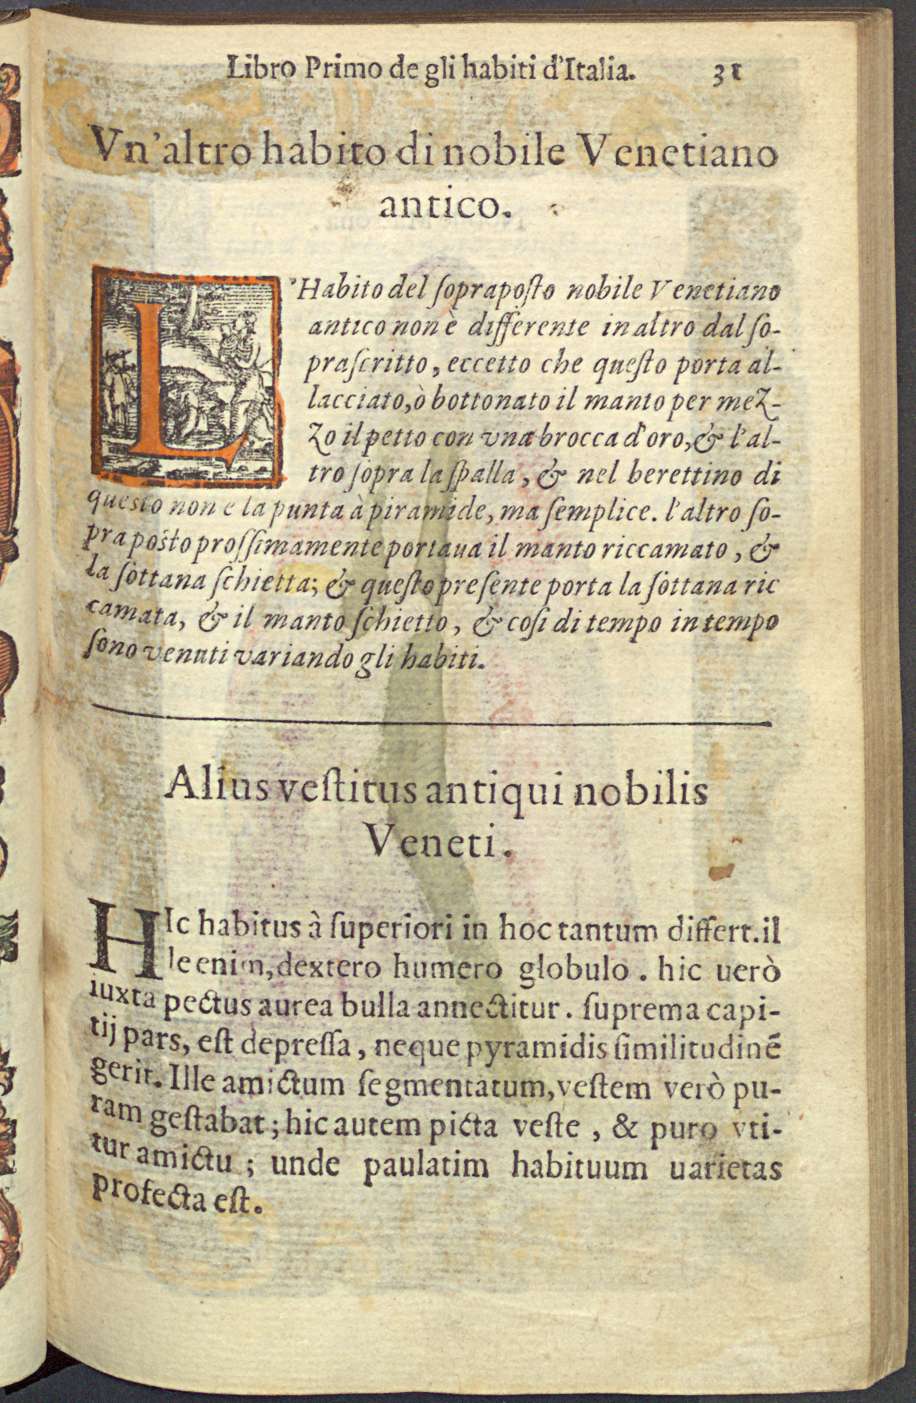 Libro Primo de gli habiti d'Italia. 31
Vn'altro habito di nobile Venetiano
antico.
L'Habito del ſoprapoſto nobile Venetiano
antico non è differente in altro dal ſo-
praſcritto, eccetto che queſto porta al-
lacciato, ò bottonato il manto per mez-
zo il petto con vna brocca d'oro, & l'al-
tro ſopra la ſpalla, & nel berettino di
questo non è la punta à piramide, ma ſemplice. l'altro ſo-
prapoſto proſſimamente portaua il manto riccamato, &
la ſottana ſchietta; & queſto preſente porta la ſottana ric
camata, & il manto ſchietto, & coſi di tempo in tempo
ſono venuti variando gli habiti.
Alius veſtitus antiqui nobilis
Veneti.
HIc habitus à ſuperiori in hoc tantum differt. il
le enim, dextero humero globulo. hic uerò
iuxta pectus aurea bulla annectitur. ſuprema capi-
tij pars, eſt depreſſa, neque pyramidis ſimilitudinē
gerit. Ille amictum ſegmentatum, veſtem verò pu-
ram geſtabat; hic autem picta veſte, & puro vti-
tur amictu; unde paulatim habituum uarietas
profecta eſt.